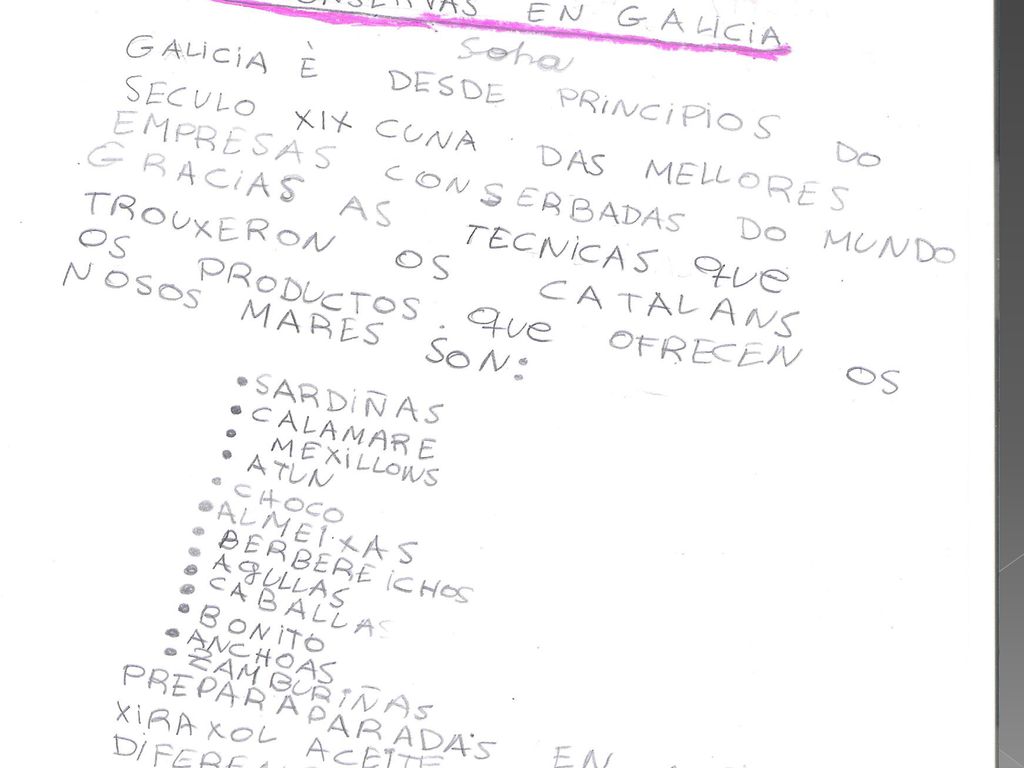 CONSERVAS EN GALICIA
GALICIA È DESDE PRINCIPIOS DO
SECULO XIX CUNA DAS MELLORES
EMPRESAS CONSERBADAS DO MUNDO
GRACIAS AS TECNICAS QUE
TROUXERON OS CATALANS
OS PRODUCTOS QUE OFRECEN OS
NOSOS MARES SON:
• SARDIÑAS
• CALAMARE
• MEXILLOWS
• ATUN
• CHOCO
• ALMEIXAS
• BERBEREICHOS
• AGULLAS
• CABALLAS
• BONITO
• ANCHOAS
• ZAMBURIÑAS
PREPARAPARADAS EN
XIRAXOL ACEITE